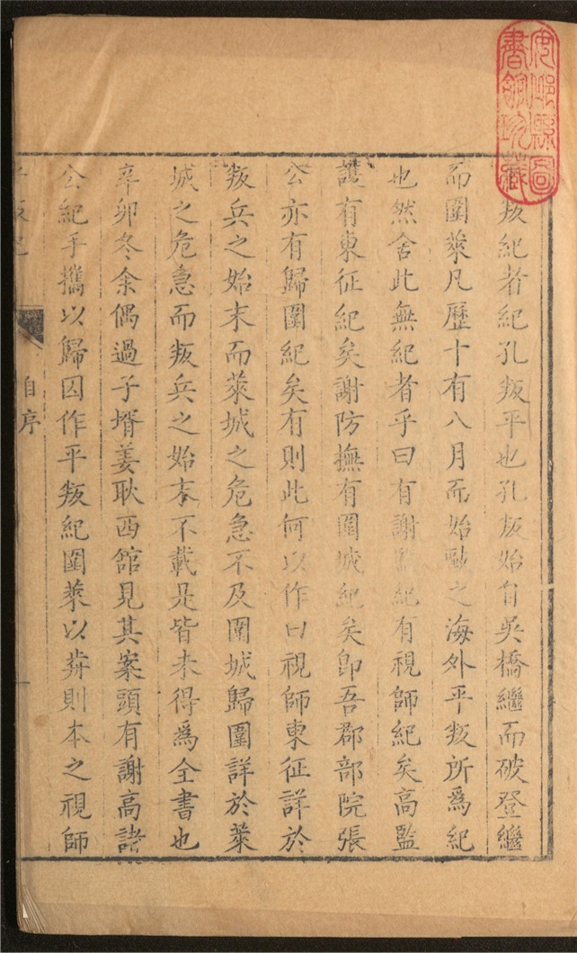 叛紀者紀孔叛平也孔叛始自吳橋繼而破登繼
而圍萊凡歷十有八月而始敺之海外平叛所爲紀
也然舍此無紀者乎曰有謝 紀有視師紀矣高監
護有東征紀矣謝防撫有圍城紀矣卽吾郡部院張
公亦有歸圍紀矣有則此何以作曰視師東征詳於
叛兵之始末而萊城之危急不及圍城歸圍詳於萊
城之危急而叛兵之始末不載是皆未得爲全書也
辛卯冬余偶過子壻姜耿西館見其案頭有謝高諸
公紀手攜以歸因作平叛紀圍萊以葬則本之視師
自序